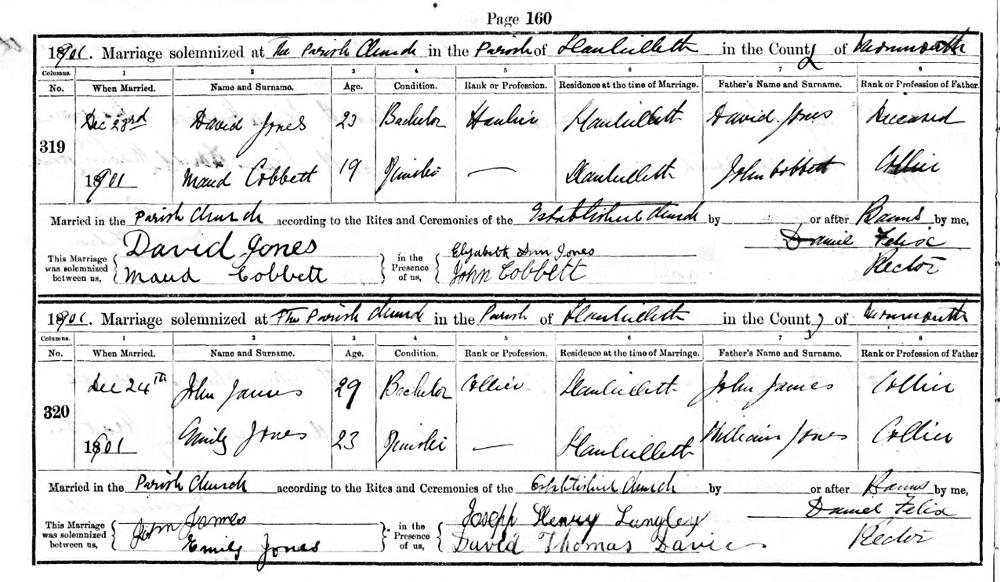 Page 160
1901. Marriage solemnized at The Parish Church in the Parish of Llanhilleth in the County of Monmouth
Columns. 1 2 3 4 5 6 7 8
No. When Married. Name and Surname. Age. Condition. Rank or Profession. Residence at the time of Marriage. Father's Name and Surname. Rank or Profession of Father.
Dec 23rd David Jones 23 Bachelor Haulier Llanhilleth David Jones Deceased
319
1901 Maud Cobbett 19 Spinster — Llanhilleth John Cobbett Collier
Married in the Parish Church according to the Rites and Ceremonies of the Established Church by or after Banns by me,
This Marriage was solemnized between us, David Jones in the Presence of us, Elizabeth Ann Jones Daniel Felix
Maud Cobbett John Cobbett Rector
1901. Marriage solemnized at The Parish Church in the Parish of Llanhilleth in the County of Monmouth
Columns. 1 2 3 4 5 6 7 8
No. When Married. Name and Surname. Age. Condition. Rank or Profession. Residence at the time of Marriage. Father's Name and Surname. Rank or Profession of Father
Dec 24th John James 29 Bachelor Collier Llanhilleth John James Collier
320
1901 Emily Jones 23 Spinster — Llanhilleth William Jones Collier
Married in the Parish Church according to the Rites and Ceremonies of the Established Church by or after Banns by me,
This Marriage was solemnized between us, John James in the Presence of us, Joseph Henry Langley Daniel Felix
Emily Jones David Thomas Davies Rector